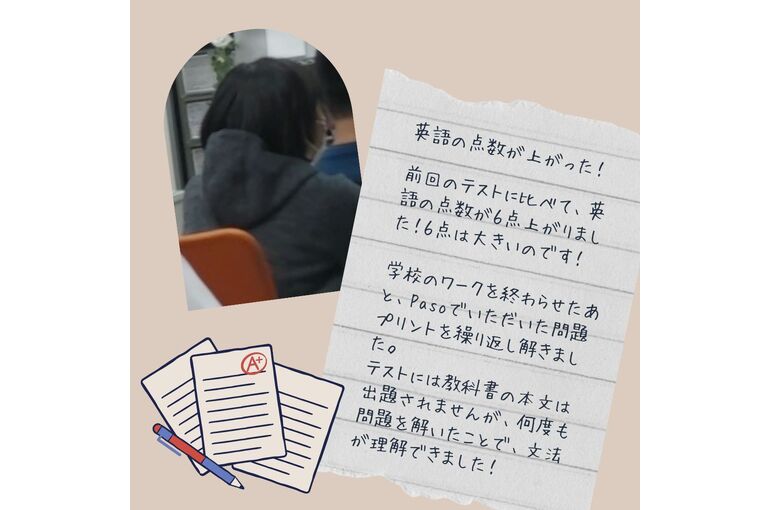 英語の点数が上がった!
前回のテストに比べて、英
語の点数が6点上がりまし
た!6点は大きいのです!
学校のワークを終わらせたあ
と、Pasoでいただいた問題
プリントを繰り返し解きまし
た。
テストには教科書の本文は
出題されませんが、何度も
問題を解いたことで、文法
が理解できました!
A+